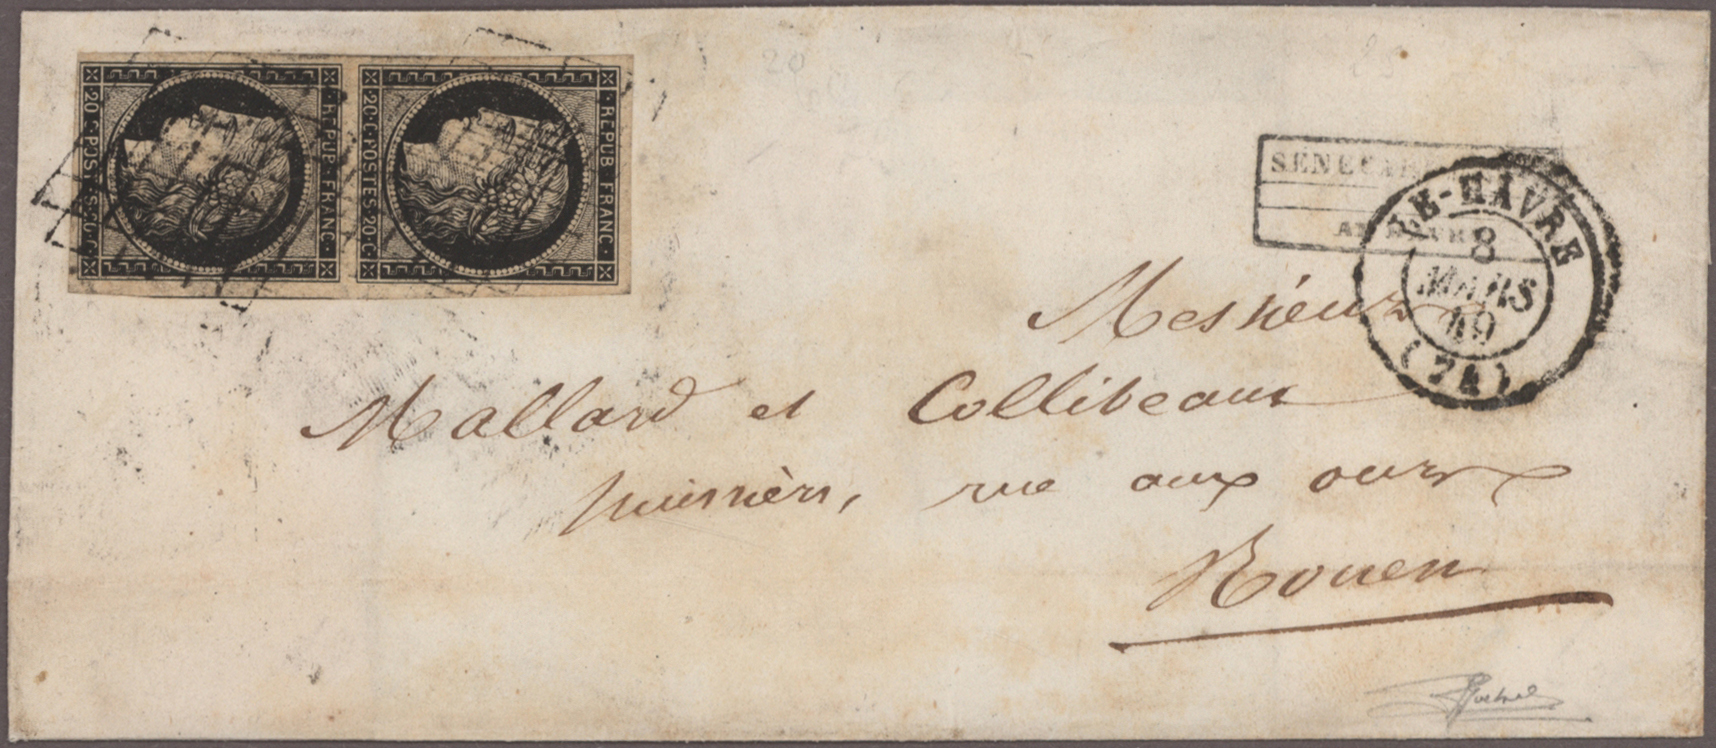 20·C·POSTES·20·C·
REPUB·FRANC·
20·C·POSTES·20·C·
REPUB·FRANC·
LE-HAVRE
8
MARS
49
(74)
Messieurs
Mallard et Collibeaux
huissiers, rue aux ours
Rouen